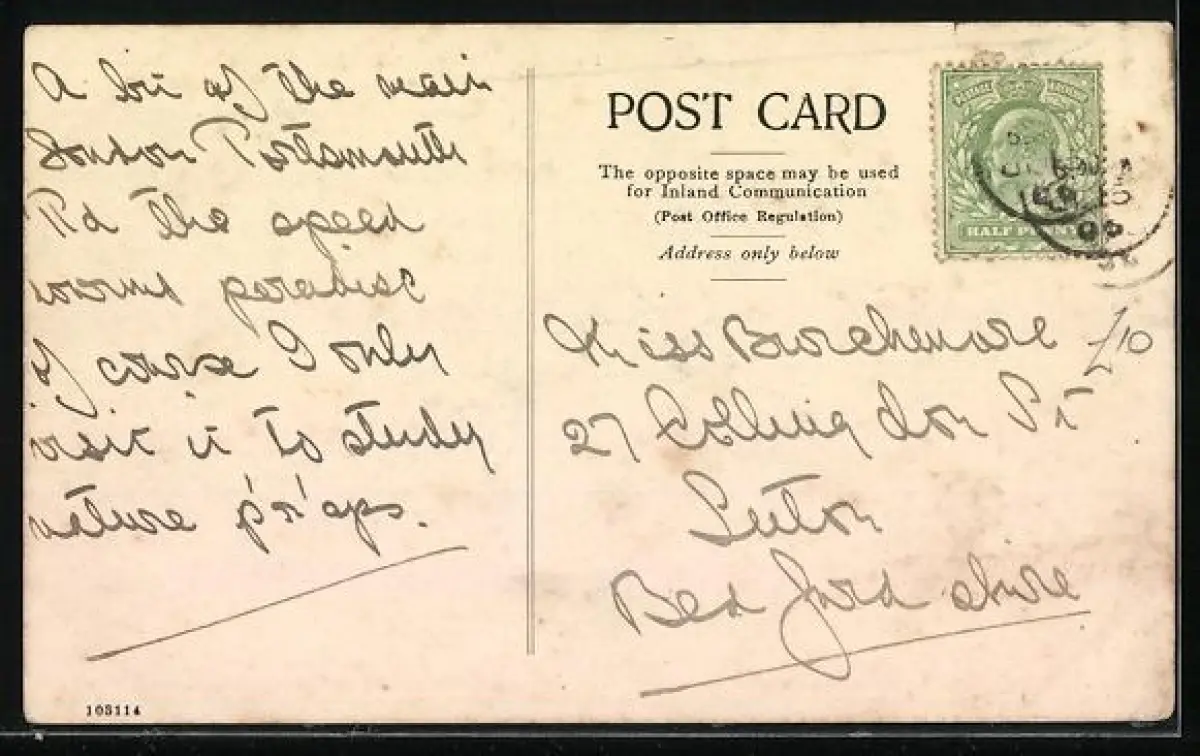 A bit of the main
London Portsmouth
Rd the speed
worms paradise
of course I only
visit it to study
nature p'r'aps.
103114
POST CARD
The opposite space may be used
for Inland Communication
(Post Office Regulation)
Address only below
POSTAGE REVENUE
HALF PENNY
Miss
£10
27 Collingdon St
Luton
Bedfordshire